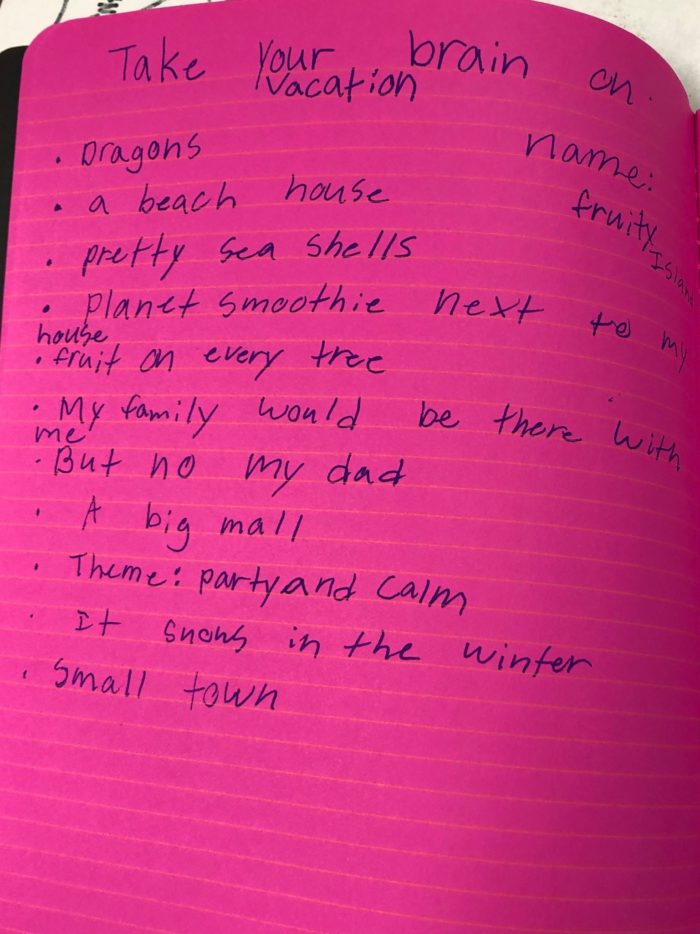 Take your brain on.
vacation
• Dragons
name:
• a beach house
fruity
Island
• pretty sea shells
• Planet smoothie next to my
house
• fruit on every tree
• My family would be there with
me
• But no my dad
• A big mall
• Theme: party and calm
• It snows in the winter
• small town